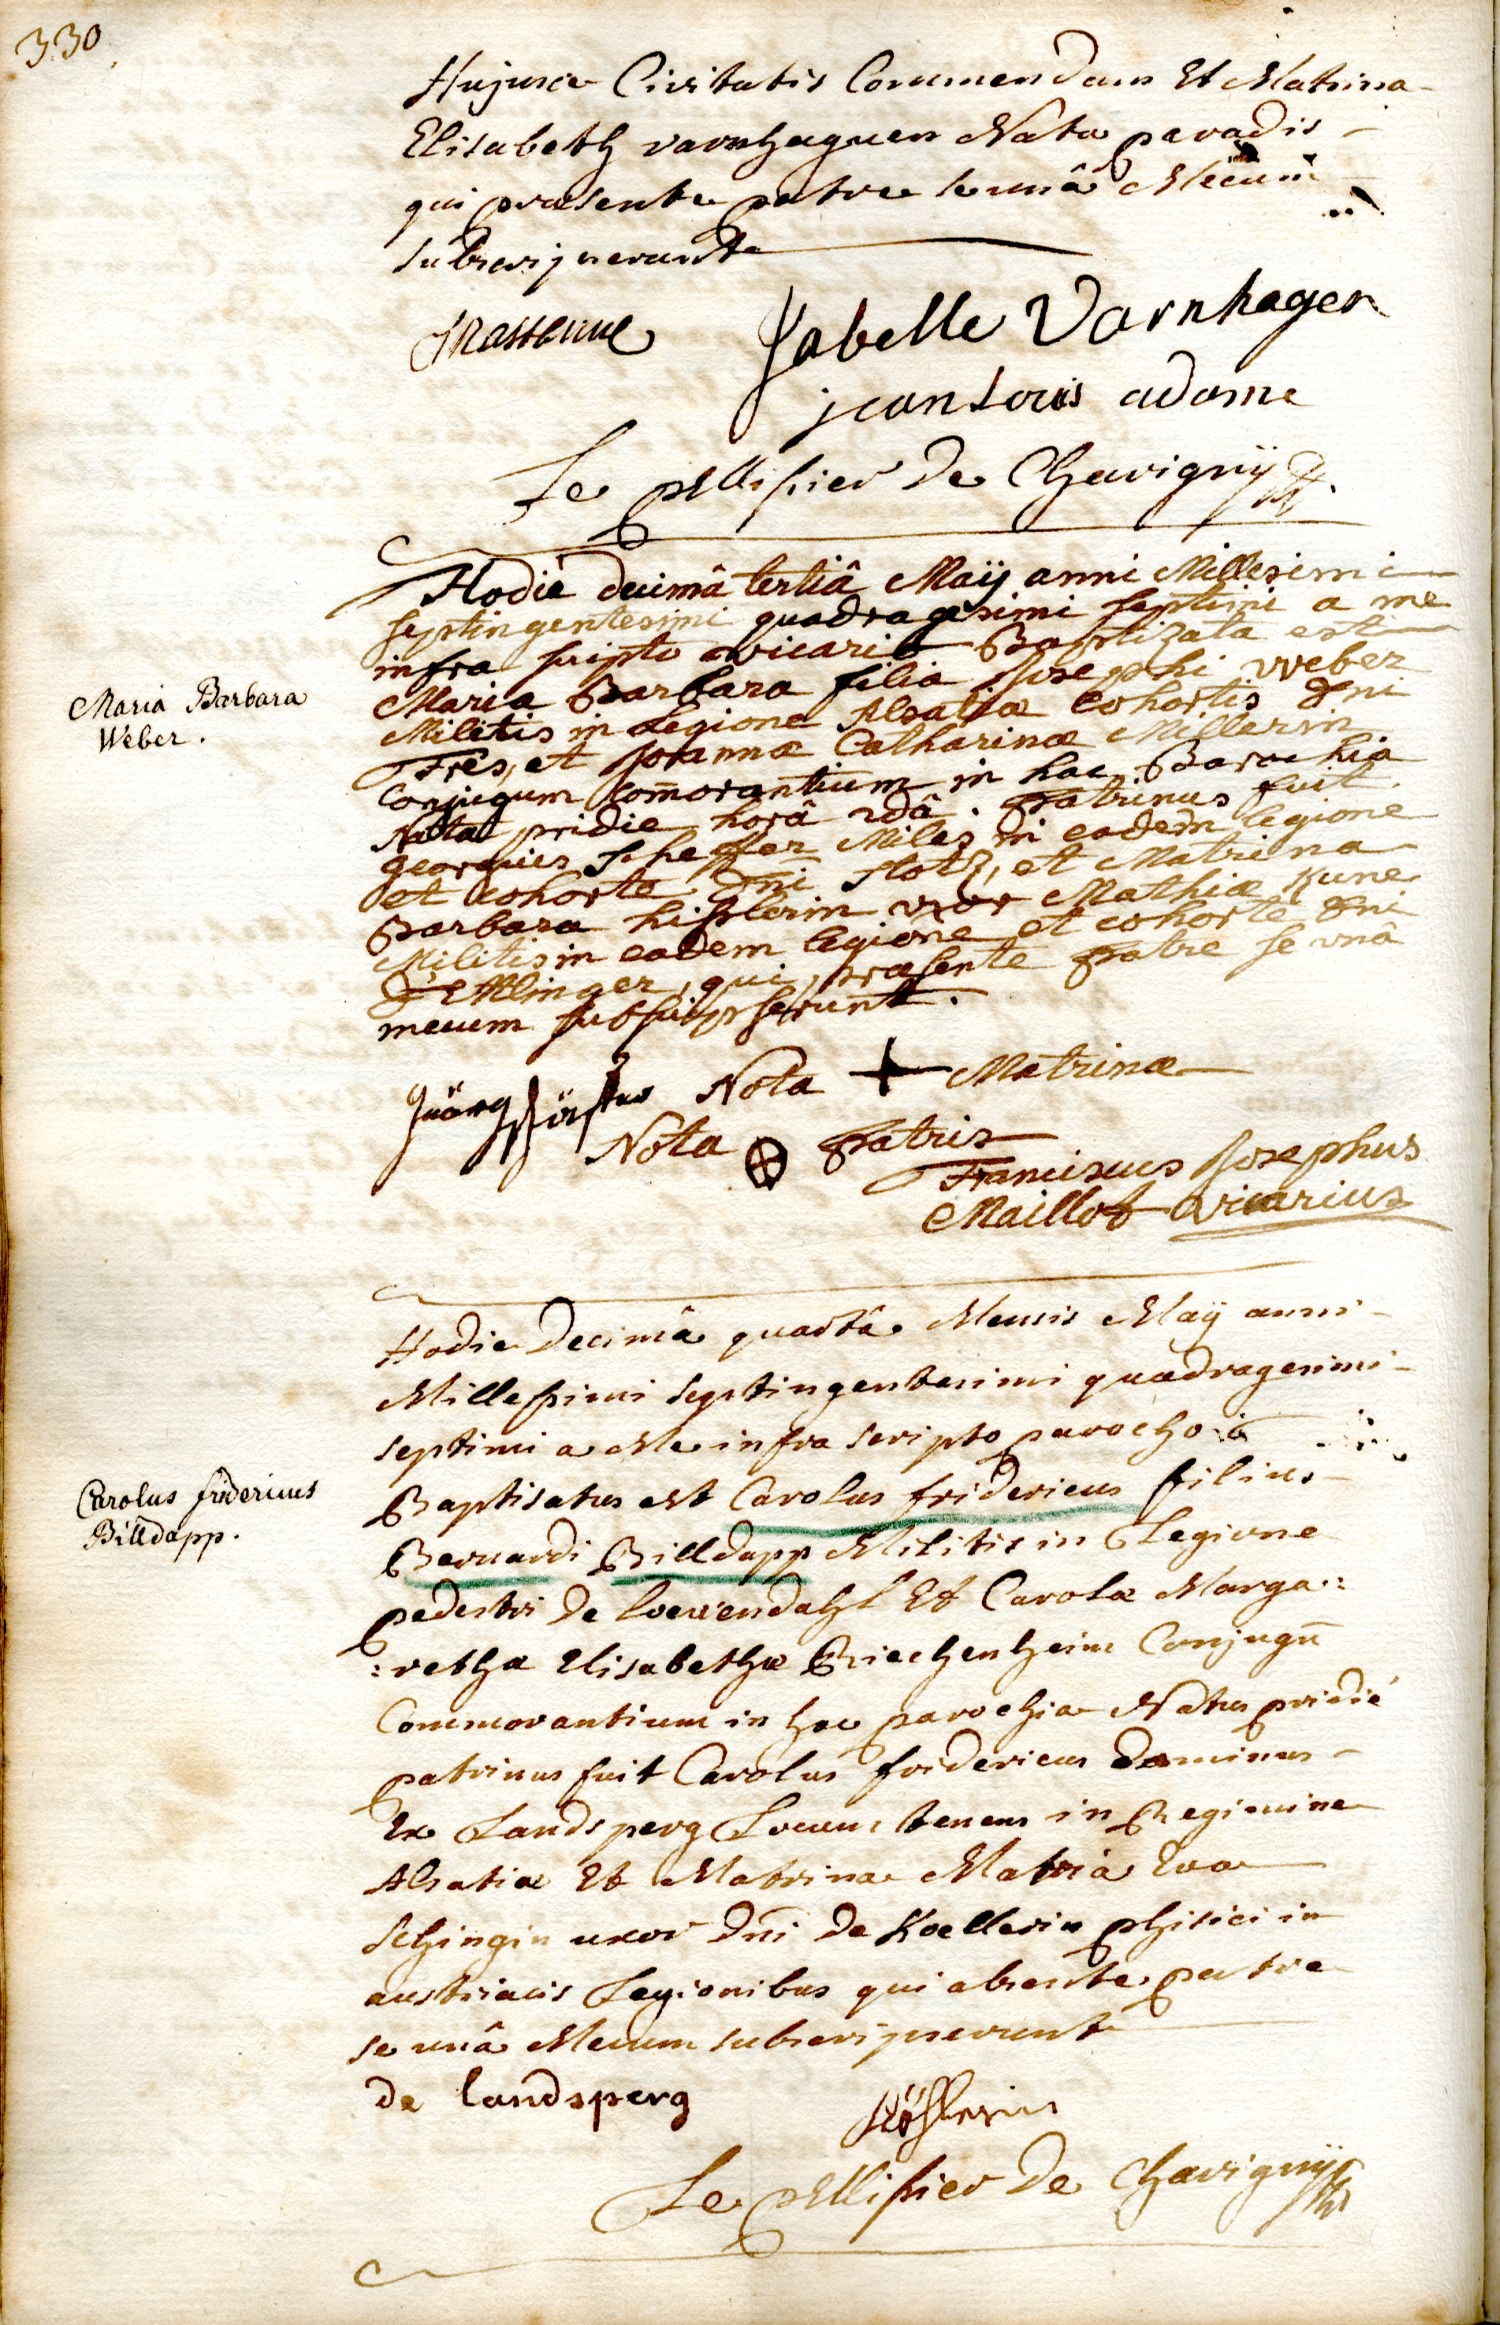 330
Hujusce Civitatis Commendans Et Matrina
Elisabeth varnhaguen Nata paradis
qui præsente patre se unâ Mecum
subscripserunt
Isabelle Varnhagen
jean Louis adame
Le pellissier De Chavigny
Hodie decimâ tertiâ Maÿ anni Millesimi
septingentesimi quadragesimi septimi a me
infra scripto vicario Baptizata est
Maria Barbara filia Josephi Weber
Militis in Legione Alsatiæ Cohortis Dni
Fres, et Joannæ Catharinæ Millerin
Conjugum Com̃orantium in hac Parochia
Nata pridie horâ 2dâ. Patrinus fuit
georgius scheffer Miles in eadem legione
et cohorte Dni Stotz, et Matrina
Barbara hisslerin uxor Mathiæ Kune
Militis in eadem legione et cohorte Dni
D'Ettlinger, qui, præsente Patre se unâ
mecum subscripserunt.
Maria Barbara
Weber.
Nota + Matrinæ
Nota Patris
Franciscus Josephus
Maillot Vicarius
Hodie Decimâ quartâ Mensis Maÿ anni
Millessimi septingentesimi quadragesimi
septimi a Me infra scripto parocho
Baptisatus est Carolus fridericus filius
Bernardi Billdapp Militis in Legione
pedestri De Loewendahl Et Carolæ Marga:
:retha Elisabethæ Riechenheim Conjugũ
Commorantium in hac parochia Natus pridié
patrinus fuit Carolus fridericus Dominus
Ex Landsperg Locum tenens in Regimine
Alsatiæ Et Matrina Maria Eva
Schingin uxor Dni De Koellerin phisici in
austriacis Legionibus qui absente patre
se unâ Mecum subscripserunt
Carolus fridericus
Billdapp.
de landsperg
Le pellissier De Chavigny